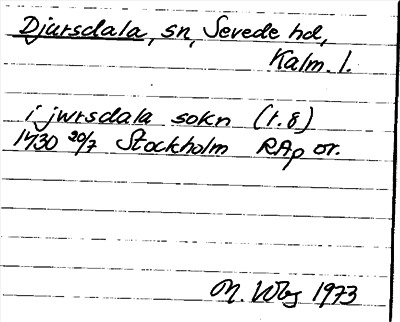 Djursdala, sn, Sevede hd,
Kalm. l.
i jwrsdala sokn (r. 8)
1430 20/7 Stockholm RAp or.
M. Wbg 1973